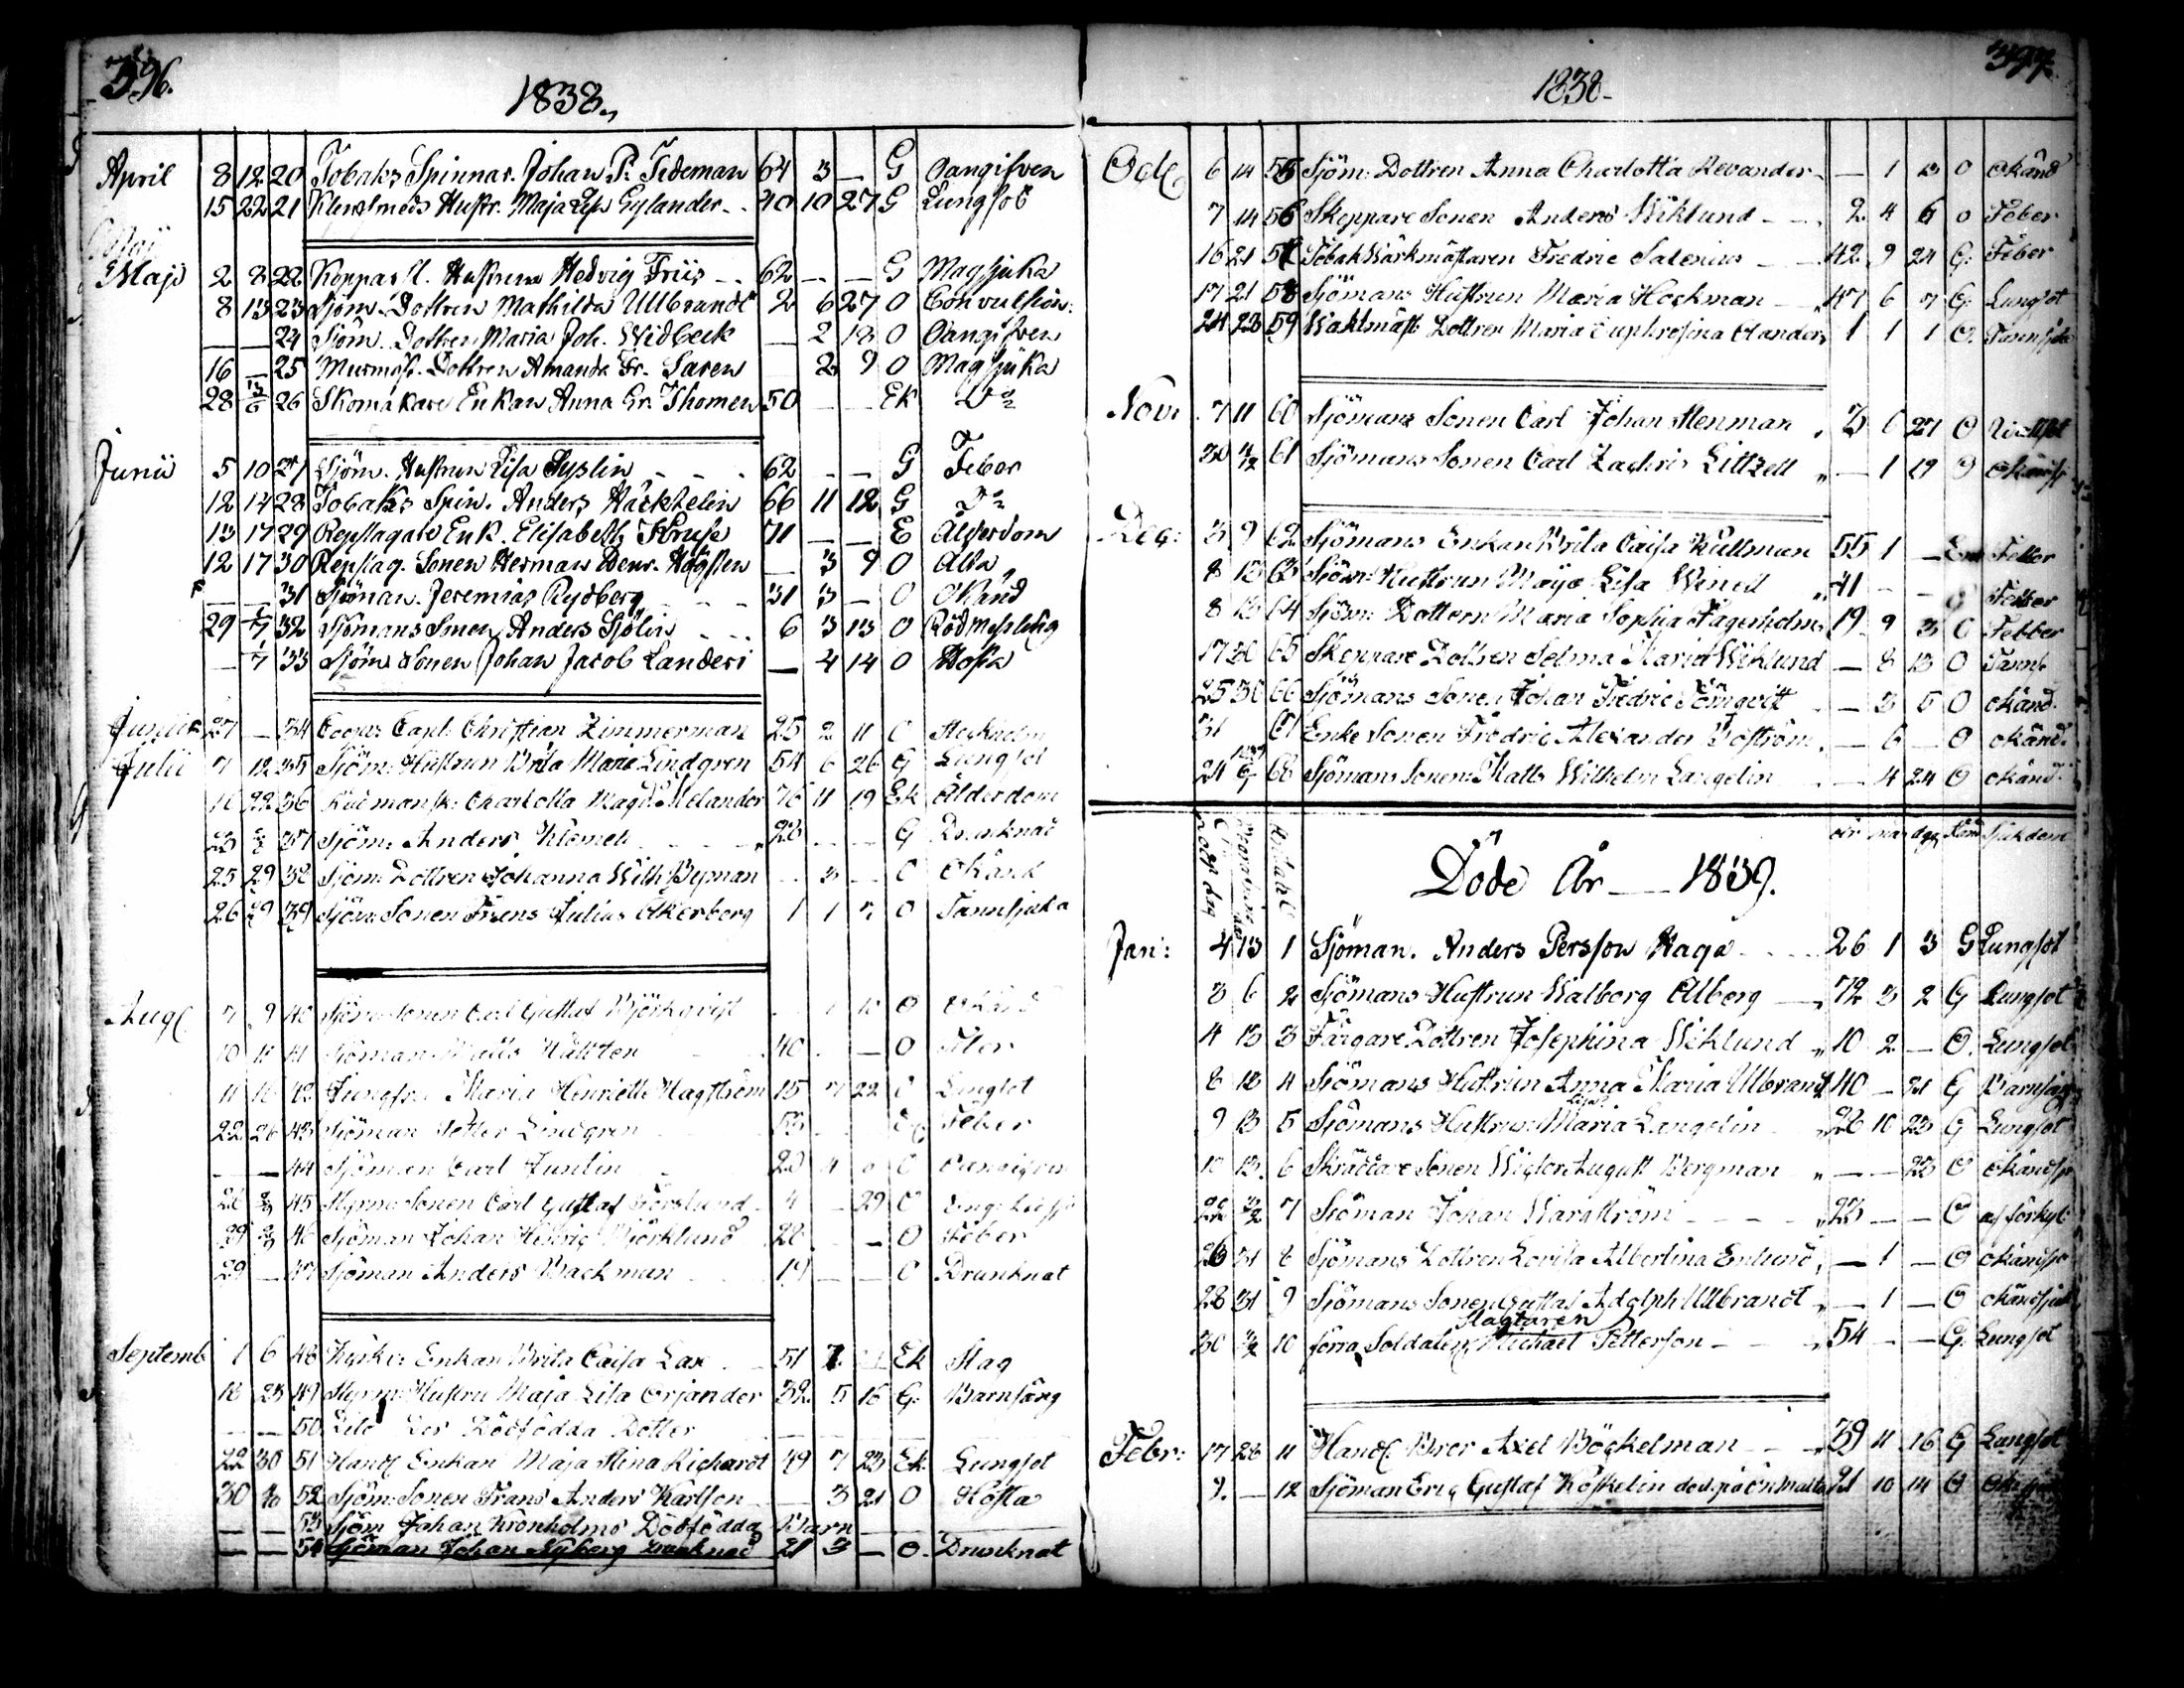 396.
1838.
April 8 12 20 Tobaks Spinnar. Johan P. Tideman 64 3 — G Oangifven
15 22 21 Klensmeds Hustr. Maja Lisa Gylander 40 10 27 G Lungsot
Maji 2 8 22 Kopparsl. Hustrun Hedvig Friis 62 — — G Magsjuka
8 13 23 Sjöm. Dottren Mathilda Ullbrandt 2 6 27 O Convulsion:
— — 24 Sjöm. Dottren Maria Joh. Widbeck — 2 18 O Oangifven
16 — 25 Murmäst. Dottren Amanda Fr. Saren — 2 9 O Magsjuka
28 3/6 26 Skomakare Enkan Anna Gr. Thomen 50 — — Ek Do
Junii 5 10 27 Sjöm. Hustrun Lisa Syslin 62 — — G Feber
12 14 28 Tobaks Spin. Anders Häckzelin 66 11 12 G Do
13 17 29 Repslagare Enk. Elisabeth Kruse 71 — — E Ålderdom
12 17 30 Repslag. Sonen Herman Henr. Högsten — 3 9 O Alta
— — 31 Sjöman. Jeremias Rydberg 31 3 — O Okänd
29 1/7 32 Sjömans Sonen Anders Sjölin 6 3 13 O Rödmessling
— 1/7 33 Sjöm. Sonen Johan Jacob Landers — 4 14 O Hosta
Junii 27 — 34 Capt. Christian Zimmerman 25 2 11 O Stockholm
Julii 7 12 35 Sjöm: Hustrun Brita Maria Lindgren 54 6 26 G Lungsot
22 36 Charlotta Magd. Melander 76 11 19 Ek Ålderdom
37 Sjöm: Anders Klemets 28 — — G Drunknat
25 29 38 Sjöm: Dottren Johanna Wilh. Byman — 3 — O Okänd
26 29 39 Sjöm: Sonen Frans Julius Åkerberg 1 1 7 O Tannsjuka
Aug: 7 9 40 Sjöm: Sonen Carl Gustaf Björkqvist O Okänd
10 41 Sjöman Matts 40 — O Feber
11 42 Jungfru Maria Henriette Hagström 15 7 22 O Lungsot
22 26 43 Sjöman Petter Lindgren 53 Feber
— — 44 Sjöman Carl Junlin O Oangifven
45 Styrm: Sonen Carl Gustaf Forslund 4 — 29 O
29 46 Sjöman Johan Henric Björklund 28 — O Feber
29 — 47 Sjöman Anders Backman 19 — — O Drunknat
Septemb 1 6 48 Enkan Brita Caisa Lax 51 7 Ek Slag
18 23 49 Styrm: Hustru Maja Lisa Örjander 32. 5 16 G. Barnsäng
— — 50 Dödfödda Dotter
22 30 51 Handl: Enkan Maja Stina Richardt 49 7 23 Ek. Lungsot
30 52 Sjöm: Sonen Frans Anders Karlson — 3 21 O Hosta
— — 53 Sjöm Johan Kronholms Dödfödda Barn
— — 54 Sjöman Johan Nyberg drunknad 21 3 — O. Drunknat
397.
1838.
Oct: 6 14 55 Sjöm: Dottren Anna Charlotta Revander — 1 3 O Okänd
7 14 56 Skeppare Sonen Anders Wiklund 2 4 6 O Feber
16 21 57 Tobak Värkmästaren Fredric Salenius 42 9 24 G. Feber
17 21 58 Sjömans Hustrun Maria Hockman 47 6 7 G. Lungsot
24 28 59 Waktmäst: Dottren Maria Euphrosina Olander 1 1 1 O. Tannsjuka
Nov: 7 11 60 Sjömans Sonen Carl Johan Stenman 3 0 27 O
30 61 Sjömans Sonen Carl Zachris Littzell — 1 19 O
Dec: 3 9 62 Sjömans Enkan Brita Caisa Kullman 55 1 — Feber
8 13 63 Sjöm: Hustrun Maja Lisa Winell 41 — — Feber
8 13 64 Sjöm: Dottern Maria Sophia Fagerholm 19 9 3 O Febber
17 30 65 Skeppare Dottren Selma Maria Wiklund — 8 13 O Tannf.
25 30 66 Sjömans Sonen Johan Fredric Törnqvist — 3 5 O Okänd.
31 67 Enke Sonen Fredric Alexander Boström — 6 — O Okänd.
68 Sjömans Sonen Matts Wilhelm Langelin — 4 24 O Okänd.
Död dag
år dgr Sjukdom
Döde År — 1839.
Jan: 4 13 1 Sjöman. Anders Persson Haga 26 1 3 G Lungsot
3 6 2 Sjömans Hustrun Walborg Ölberg 72 3 2 G Lungsot
4 13 3 Färgare Dottren Josephina Wiklund 10 2 — O. Lungsot
8 13 4 Sjömans Hustrun Anna Maria Ulbrandt 40 — 21 G Barnsäng
9 13 5 Sjömans Hustrun Maria Lisa Langelin 28 10 23 G Lungsot
10 13. 6 Skräddare Sonen Wictor August Bergman — — 23 O
7 Sjöman Johan Warström 23 — — O af förkyl:
26 31 8 Sjömans Dottren Lovisa Albertina Enlund — 1 — O
28 31 9 Sjömans Sonen Gustaf Adolph Ullbrandt — 1 — O
Slagtaren
30 3/2 10 förra Soldaten Michael Petterson 54 — — G. Lungsot
Febr: 17 28 11 Handl: Bror Axel Böckelman 39 11 16 G Lungsot
9. — 12 Sjöman Eric Gustaf Koskelin död på ön Malta 21 10 14 O